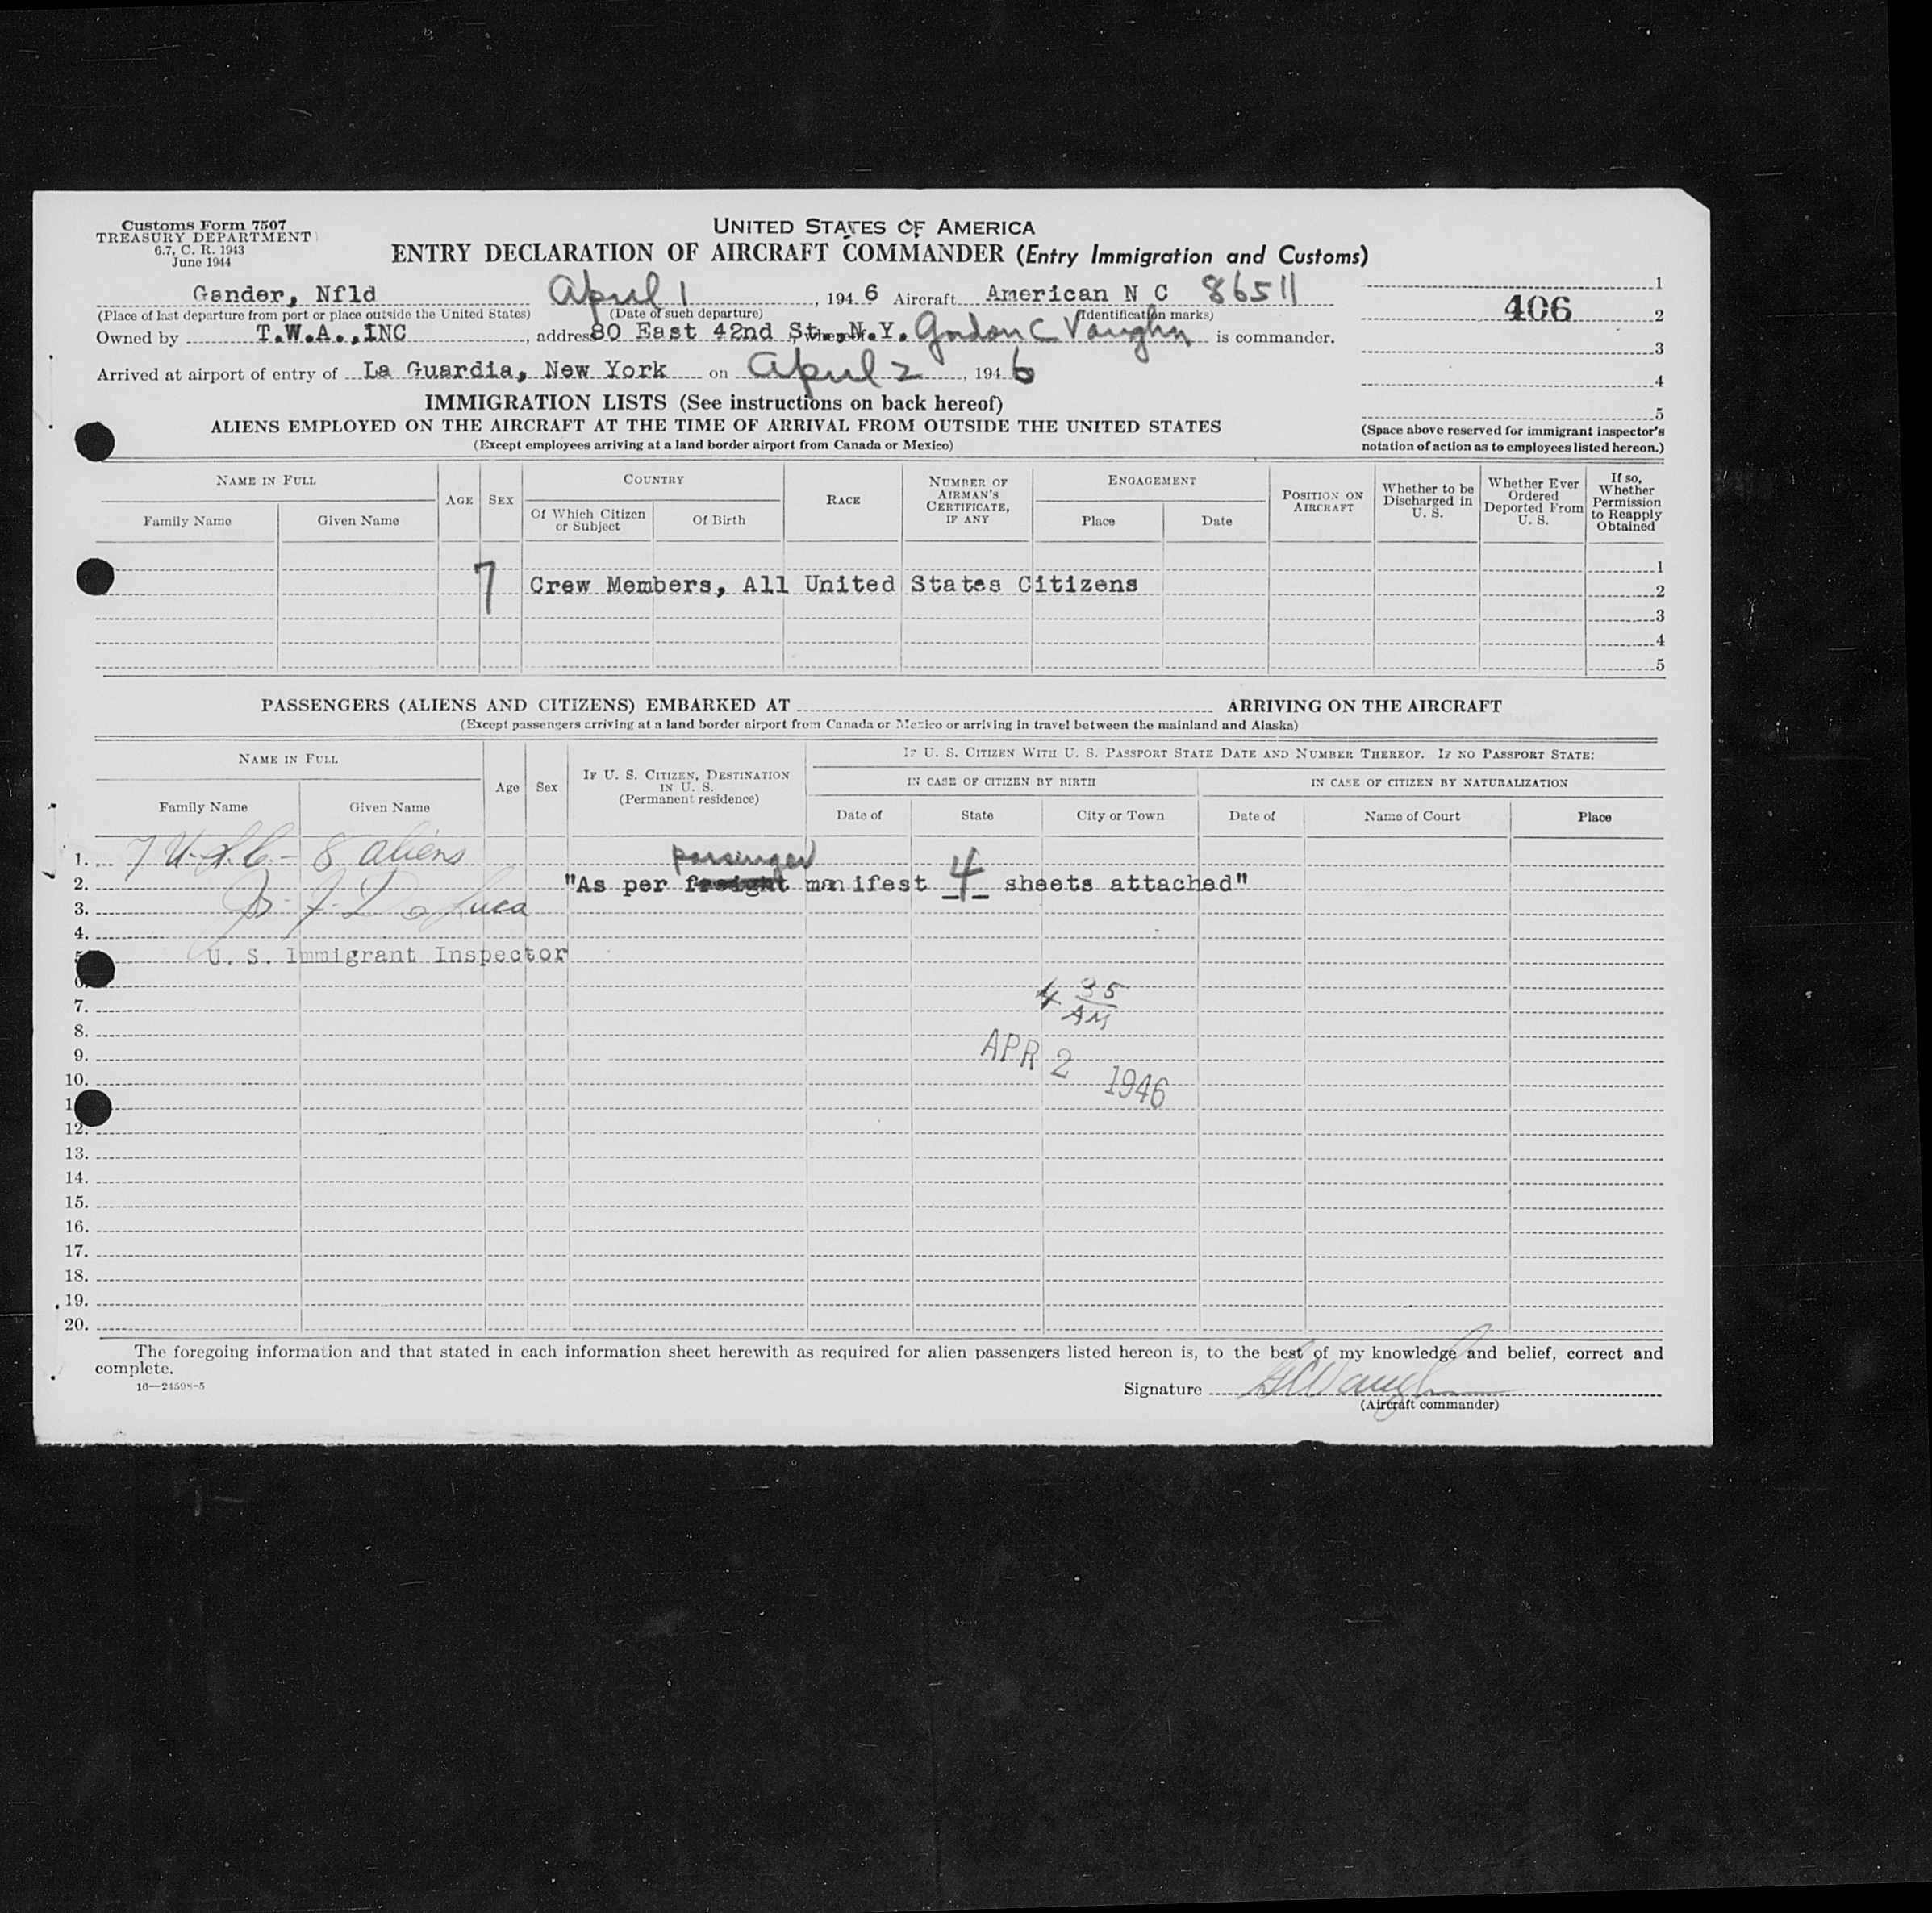 Customs Form 7507
TREASURY DEPARTMENT
6.7, C. R. 1943
June 1944
UNITED STATES OF AMERICA
ENTRY DECLARATION OF AIRCRAFT COMMANDER (Entry Immigration and Customs)
Gander, Nfld April 1, 1946 Aircraft American N C 86511
(Place of last departure from port or place outside the United States) (Date of such departure) (Identification marks)
Owned by T.W.A.,INC, address 80 East 42nd St., N.Y. whereof Gordon C Vaughn is commander.
Arrived at airport of entry of La Guardia, New York on April 2, 1946
1
406 2
3
4
5
(Space above reserved for immigrant inspector's
notation of action as to employees listed hereon.)
IMMIGRATION LISTS (See instructions on back hereof)
ALIENS EMPLOYED ON THE AIRCRAFT AT THE TIME OF ARRIVAL FROM OUTSIDE THE UNITED STATES
(Except employees arriving at a land border airport from Canada or Mexico)
NAME IN FULL
Family Name Given Name
AGE SEX
COUNTRY
Of Which Citizen
or Subject
Of Birth
RACE
NUMBER OF
AIRMAN'S
CERTIFICATE,
IF ANY
ENGAGEMENT
Place Date
POSITION ON
AIRCRAFT
Whether to be
Discharged in
U. S.
Whether Ever
Ordered
Deported From
U. S.
If so,
Whether
Permission
to Reapply
Obtained
1
7 Crew Members, All United States Citizens 2
3
4
5
PASSENGERS (ALIENS AND CITIZENS) EMBARKED AT ARRIVING ON THE AIRCRAFT
(Except passengers arriving at a land border airport from Canada or Mexico or arriving in travel between the mainland and Alaska)
NAME IN FULL
Family Name Given Name
Age Sex
IF U. S. CITIZEN, DESTINATION
IN U. S.
(Permanent residence)
IF U. S. CITIZEN WITH U. S. PASSPORT STATE DATE AND NUMBER THEREOF. IF NO PASSPORT STATE:
IN CASE OF CITIZEN BY BIRTH IN CASE OF CITIZEN BY NATURALIZATION
Date of State City or Town Date of Name of Court Place
1. 7 U.S.C. - 8 aliens passenger
2. "As per freight manifest 4 sheets attached"
3. De Luca
4.
5. U. S. Immigrant Inspector
6.
4 35
AM
7.
8.
APR 2 1946
9.
10.
12.
13.
14.
15.
16.
17.
18.
19.
20.
The foregoing information and that stated in each information sheet herewith as required for alien passengers listed hereon is, to the best of my knowledge and belief, correct and
complete.
Signature GC Vaughn
(Aircraft commander)